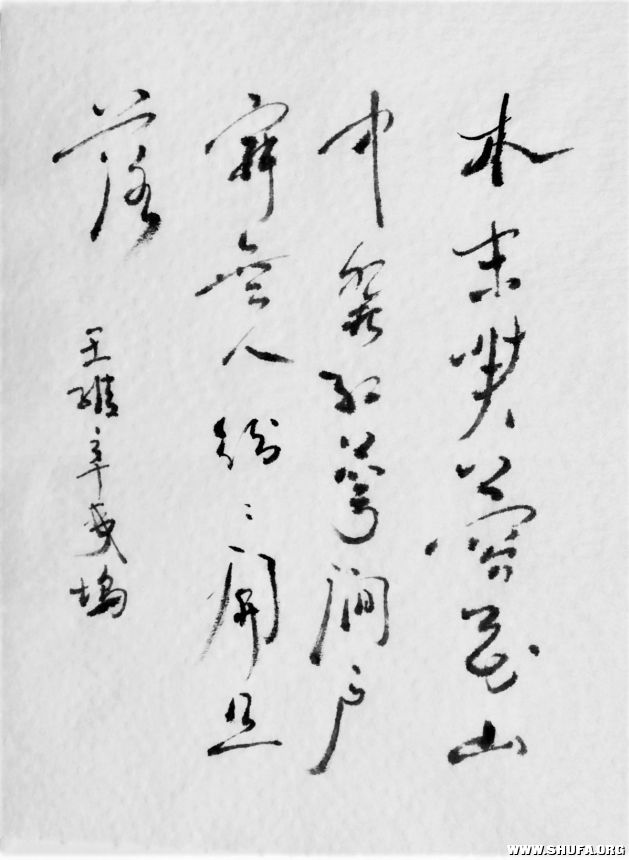 木末芙蓉花山
中發紅萼澗戶
寂無人紛〻開且
落
王維辛夷塢
WWW.SHUFA.ORG